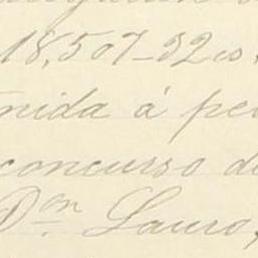 18,507-32 cs.
nida á pe
concurso de
Don. Lauro,